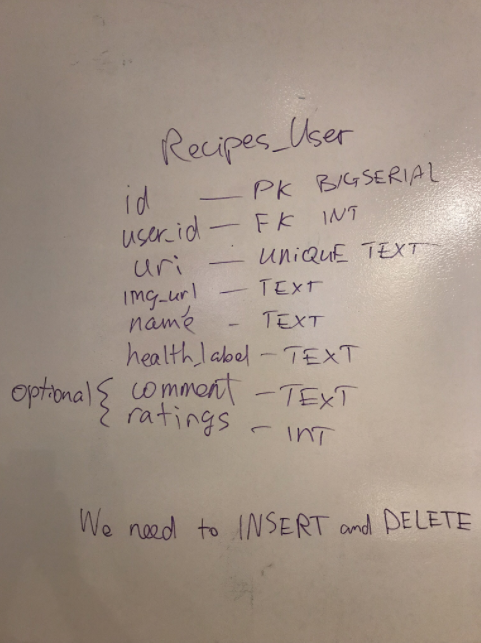 Recipes_User
id — PK BIGSERIAL
user_id — FK INT
uri — UNIQUE TEXT
img_url — TEXT
name - TEXT
health_label - TEXT
optional { comment - TEXT
ratings - INT
We need to INSERT and DELETE